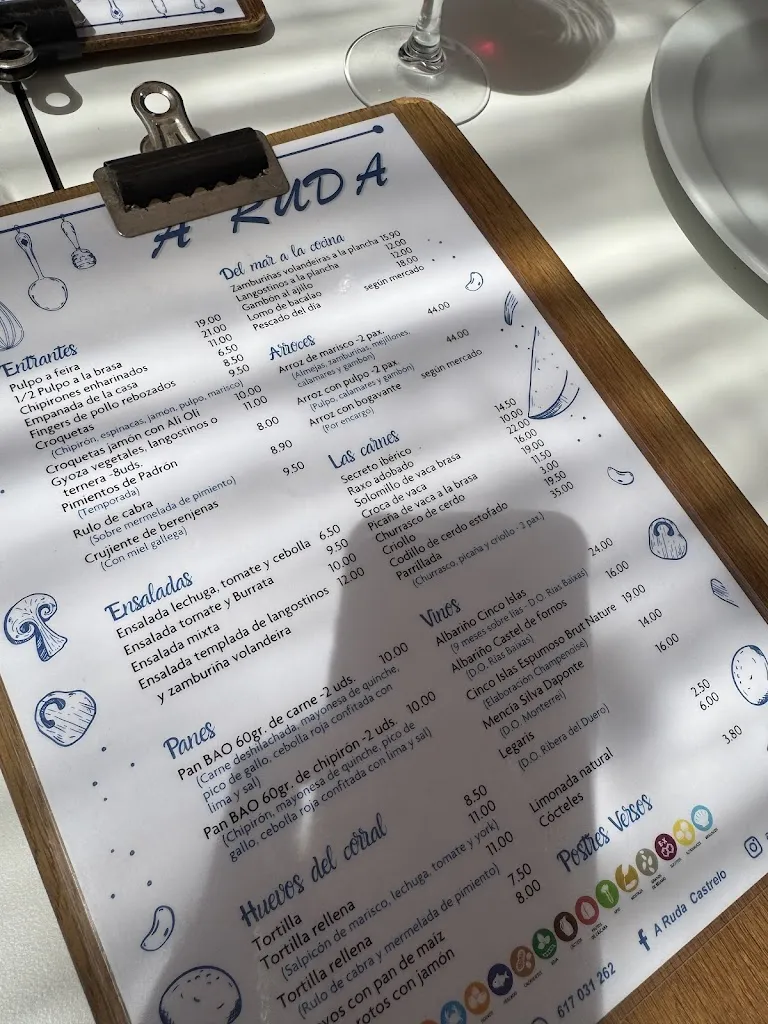 A RUDA
Entrantes
Pulpo a feira 19.00
1/2 Pulpo a la brasa 21.00
Chipirones enharinados 11.00
Empanada de la casa 6.50
Fingers de pollo rebozados 8.50
Croquetas 9.50
(Chipirón, espinacas, jamón, pulpo, marisco)
Croquetas jamón con Ali Oli 10.00
Gyoza vegetales, langostinos o 11.00
ternera -8uds.
Pimientos de Padrón 8.00
(Temporada)
Rulo de cabra 8.90
(Sobre mermelada de pimiento)
Crujiente de berenjenas 9.50
(Con miel gallega)
Ensaladas
Ensalada lechuga, tomate y cebolla 6.50
Ensalada tomate y Burrata 9.50
Ensalada mixta 10.00
Ensalada templada de langostinos 12.00
y zamburiña volandeira
Panes
Pan BAO 60gr. de carne -2 uds. 10.00
(Carne deshilachada, mayonesa de quinche,
pico de gallo, cebolla roja confitada con
lima y sal)
Pan BAO 60gr. de chipiron -2 uds. 10.00
(Chipirón, mayonesa de quinche, pico de
gallo, cebolla roja confitada con lima y sal)
Huevos del corral
Tortilla 8.50
Tortilla rellena 11.00
(Salpicón de marisco, lechuga, tomate y york)
Tortilla rellena 11.00
(Rulo de cabra y mermelada de pimiento)
con pan de maíz 7.50
rotos con jamón 8.00
Del mar a la cocina
Zamburiñas volandeiras a la plancha 15.90
Langostinos a la plancha 12.00
Gambón al ajillo 12.00
Lomo de bacalao 18.00
Pescado del día según mercado
Arroces
Arroz de marisco -2 pax. 44.00
(Almejas, zamburinas, mejillones,
calamares y gambon)
Arroz con pulpo -2 pax 44.00
(Pulpo, calamares y gambon)
Arroz con bogavante según mercado
(Por encargo)
Las carnes
Secreto ibérico 14.50
Raxo adobado 10.00
Solomillo de vaca brasa 22.00
Croca de vaca 16.00
Picaña de vaca a la brasa 19.00
Churrasco de cerdo 11.50
Criollo 3.00
Codillo de cerdo estofado 19.50
Parrillada 35.00
(Churrasco, picaña y criollo - 2 pax)
Vinos
Albariño Cinco Islas 24.00
(9 meses sobre lías - D.O. Rías Baixas)
Albariño Castel de Fornos 16.00
(D.O. Rías Baixas)
Cinco Islas Espumoso Brut Nature 19.00
(Elaboración Champenoise)
Mencía Silva Daponte 14.00
(D.O. Monterrei)
Legaris 16.00
(D.O. Ribera del Duero)
Limonada natural 2.50
Cócteles 6.00
Postres Versos 3.80
A Ruda Castrelo
617 031 262